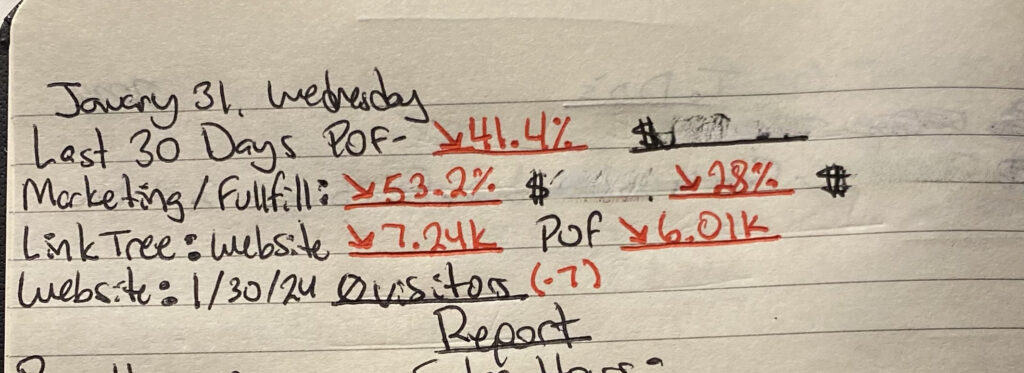 January 31, Wednesday
Last 30 Days POF- ↘41.4% $
Marketing/Fullfill: ↘53.2% $ ↘28% $
LinkTree: Website ↘7.24K POF ↘6.01K
Website: 1/30/24 0 visitors (-7)
Report